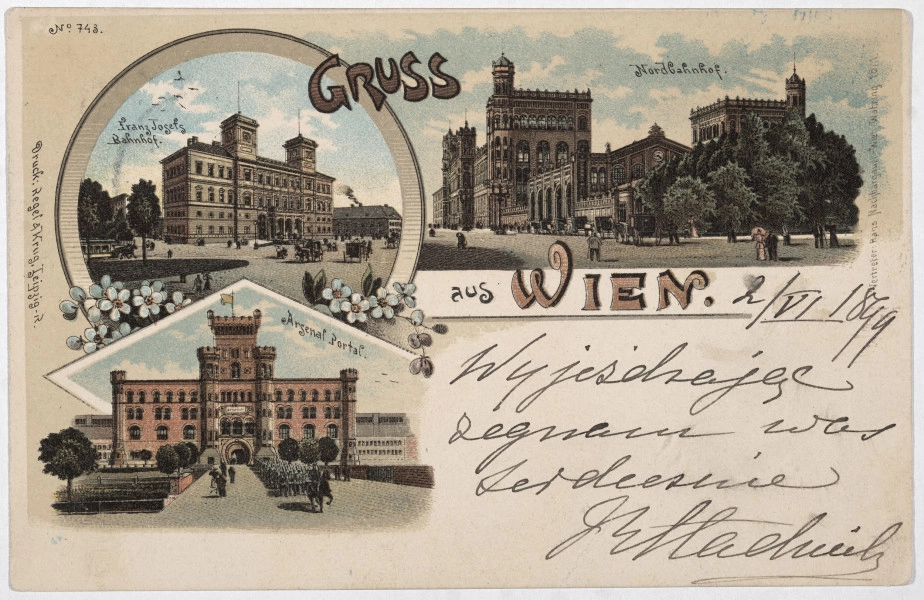 No 743.
GRUSS
Franz Josefs
Bahnhof.
Nordbahnhof.
aus WIEN. 2/VI 1899
Arsenal Portal.
Wyjeżdżając
żegnam was
serdecznie
Druck: Regel & Krug, Leipzig-R.
Vertreter: Hans Wien